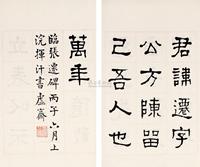 君諱遷字
公方陳留
己吾人也
萬年
臨張遷碑丙午六月上
浣揮汗書虛齋